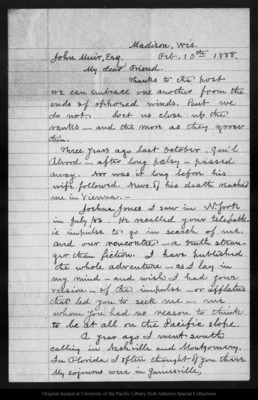 Madison, Wis.
John Muir, Esq. Feb. 10th 1888.
My dear Friend.
Thanks to the post
we can embrace one another from the
ends of opposed winds. But we
do not. Let us close up the
ranks — and the more as they grow
thin.
Three years ago last October, Gen'l
Alvord — after long palsy — passed
away. Nor was it long before his
wife followed. News of his death reached
me in Vienna. —
Joshua Jones I saw in N. York
in July /86. He recalled your telepath
ic impulse to go in search of me.
and our rencontre — a truth stran-
ger than fiction. I have published
the whole adventure — as I lay in
my mind — and wish I had your
version — of the impulse — or afflatus
that led you to seek me — me
whom you had no reason to think
to be at all on the Pacific slope.
A year ago I went south
calling in Nashville and Montgomery.
In Florida I often thought of you there.
My sojourns were in Gainesville,
Original located at University of the Pacific Library Holt-Atherton Special Collections